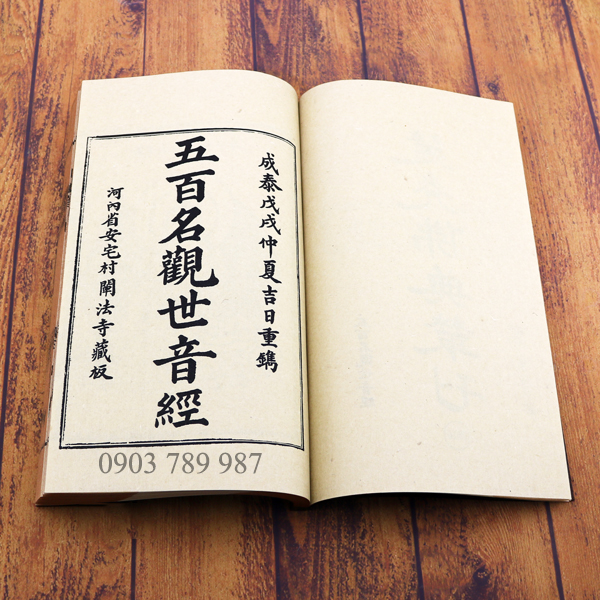 成泰戊戌仲夏吉日重鐫
五百名觀世音經
河內省安宅村闡法寺藏板
0903 789 987